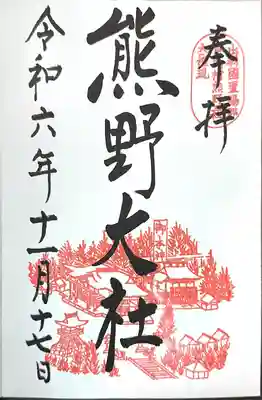 奉拝
熊野大社
令和六年十一月十七日